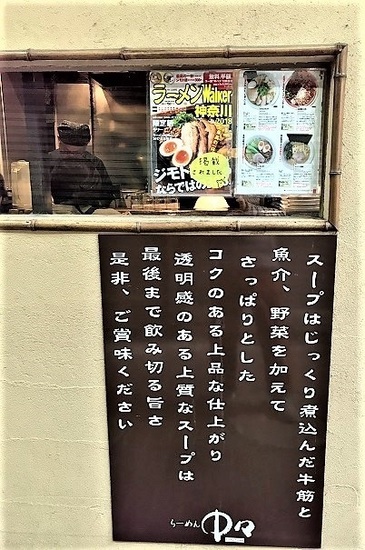 ラーメンWalker
神奈川
2018
掲載
されました
ジモト
ならではの
スープはじっくり煮込んだ牛筋と
魚介、野菜を加えて
さっぱりとした
コクのある上品な仕上がり
透明感のある上質なスープは
最後まで飲み切る旨さ
是非、ご賞味ください
らーめん